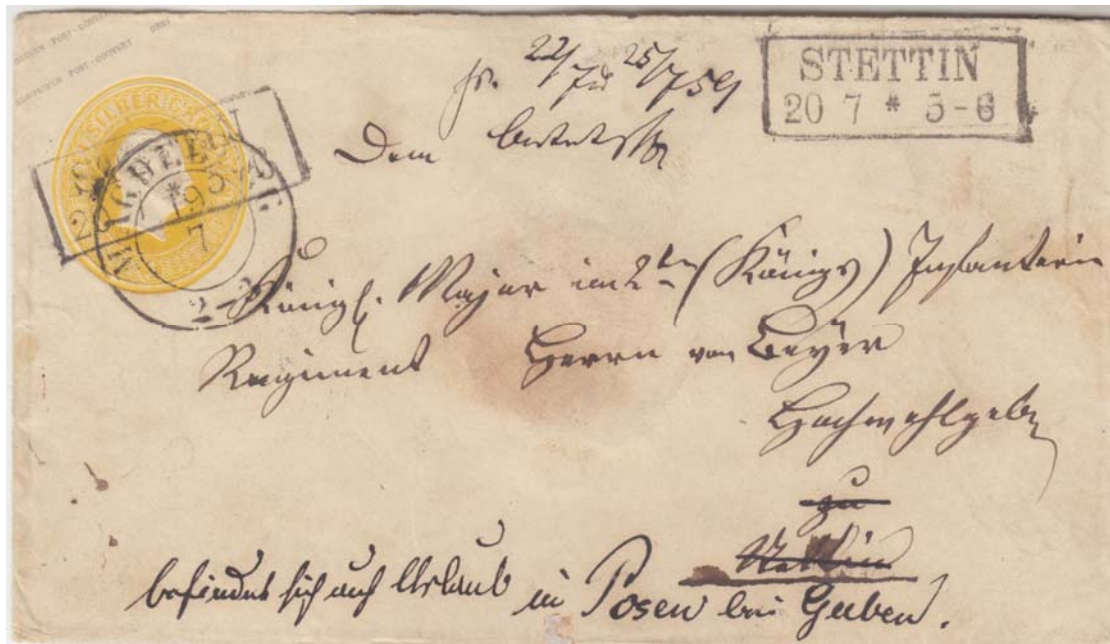 STETTIN
20 7 * 5-6
MAGDEBURG
19 5
7
2-3
22/7 25/7 59
Dem
Königl. Major im 2ten (Königs) Infanterie
Regiment Herrn von Beyer
Hochwohlgeb
zu
Stettin
befindet sich auf Urlaub in Posen bei Guben.